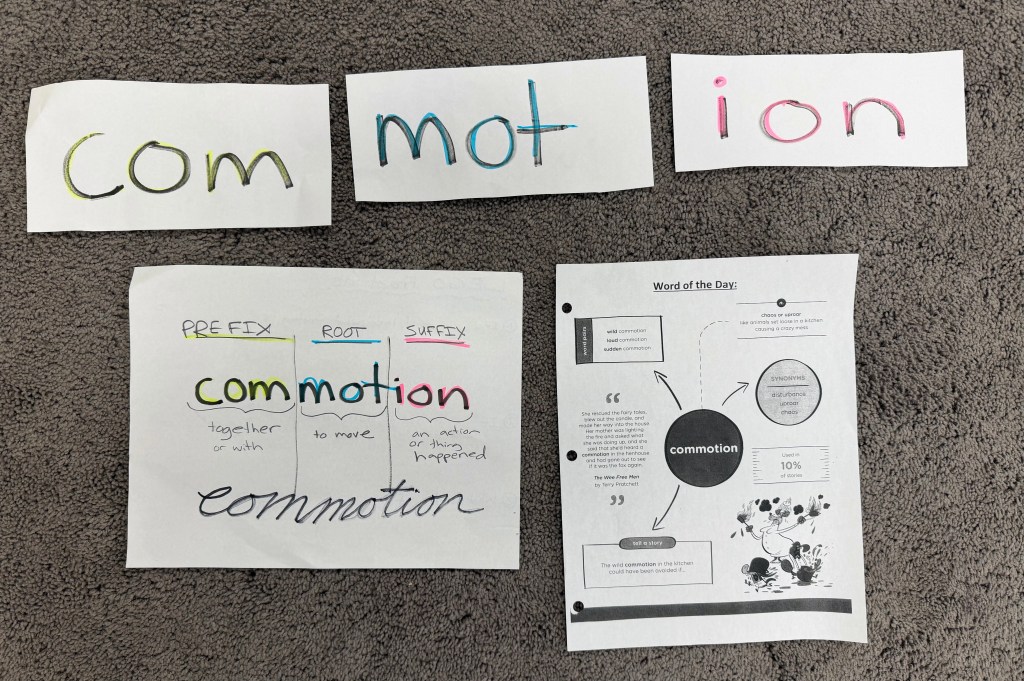 com
mot
ion
PREFIX ROOT SUFFIX
commotion
together
or with
to move
an action
or thing
happened
commotion
Word of the Day:
word pairs
wild commotion
loud commotion
sudden commotion
chaos or uproar
like animals set loose in a kitchen
causing a crazy mess
SYNONYMS
disturbance
uproar
chaos
“
She rescued the fairy tales,
blew out the candle, and
made her way into the house.
Her mother was lighting
the fire and asked what
she was doing up, and she
said that she'd heard a
commotion in the henhouse
and had gone out to see
if it was the fox again.
The Wee Free Men
by Terry Pratchett
”
commotion
Used in
10%
of stories
tell a story
The wild commotion in the kitchen
could have been avoided if...